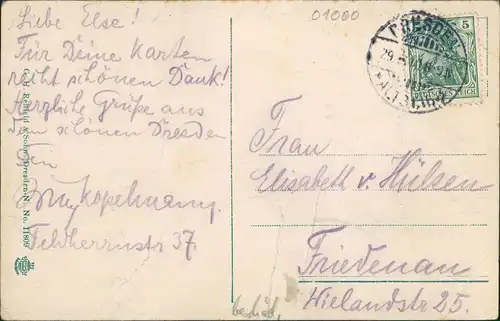 Liebe Else!
Für Deine Karten
recht schönen Dank!
Herzliche Grüße aus
dem schönen Dresden
Feldherrnstr 37.
01000
DRESDEN
29.
5
DEUTSCHES REICH
Frau
Elisabeth v. Hülsen
Friedenau
Wielandstr 25.
Dresden-N. No. 1189